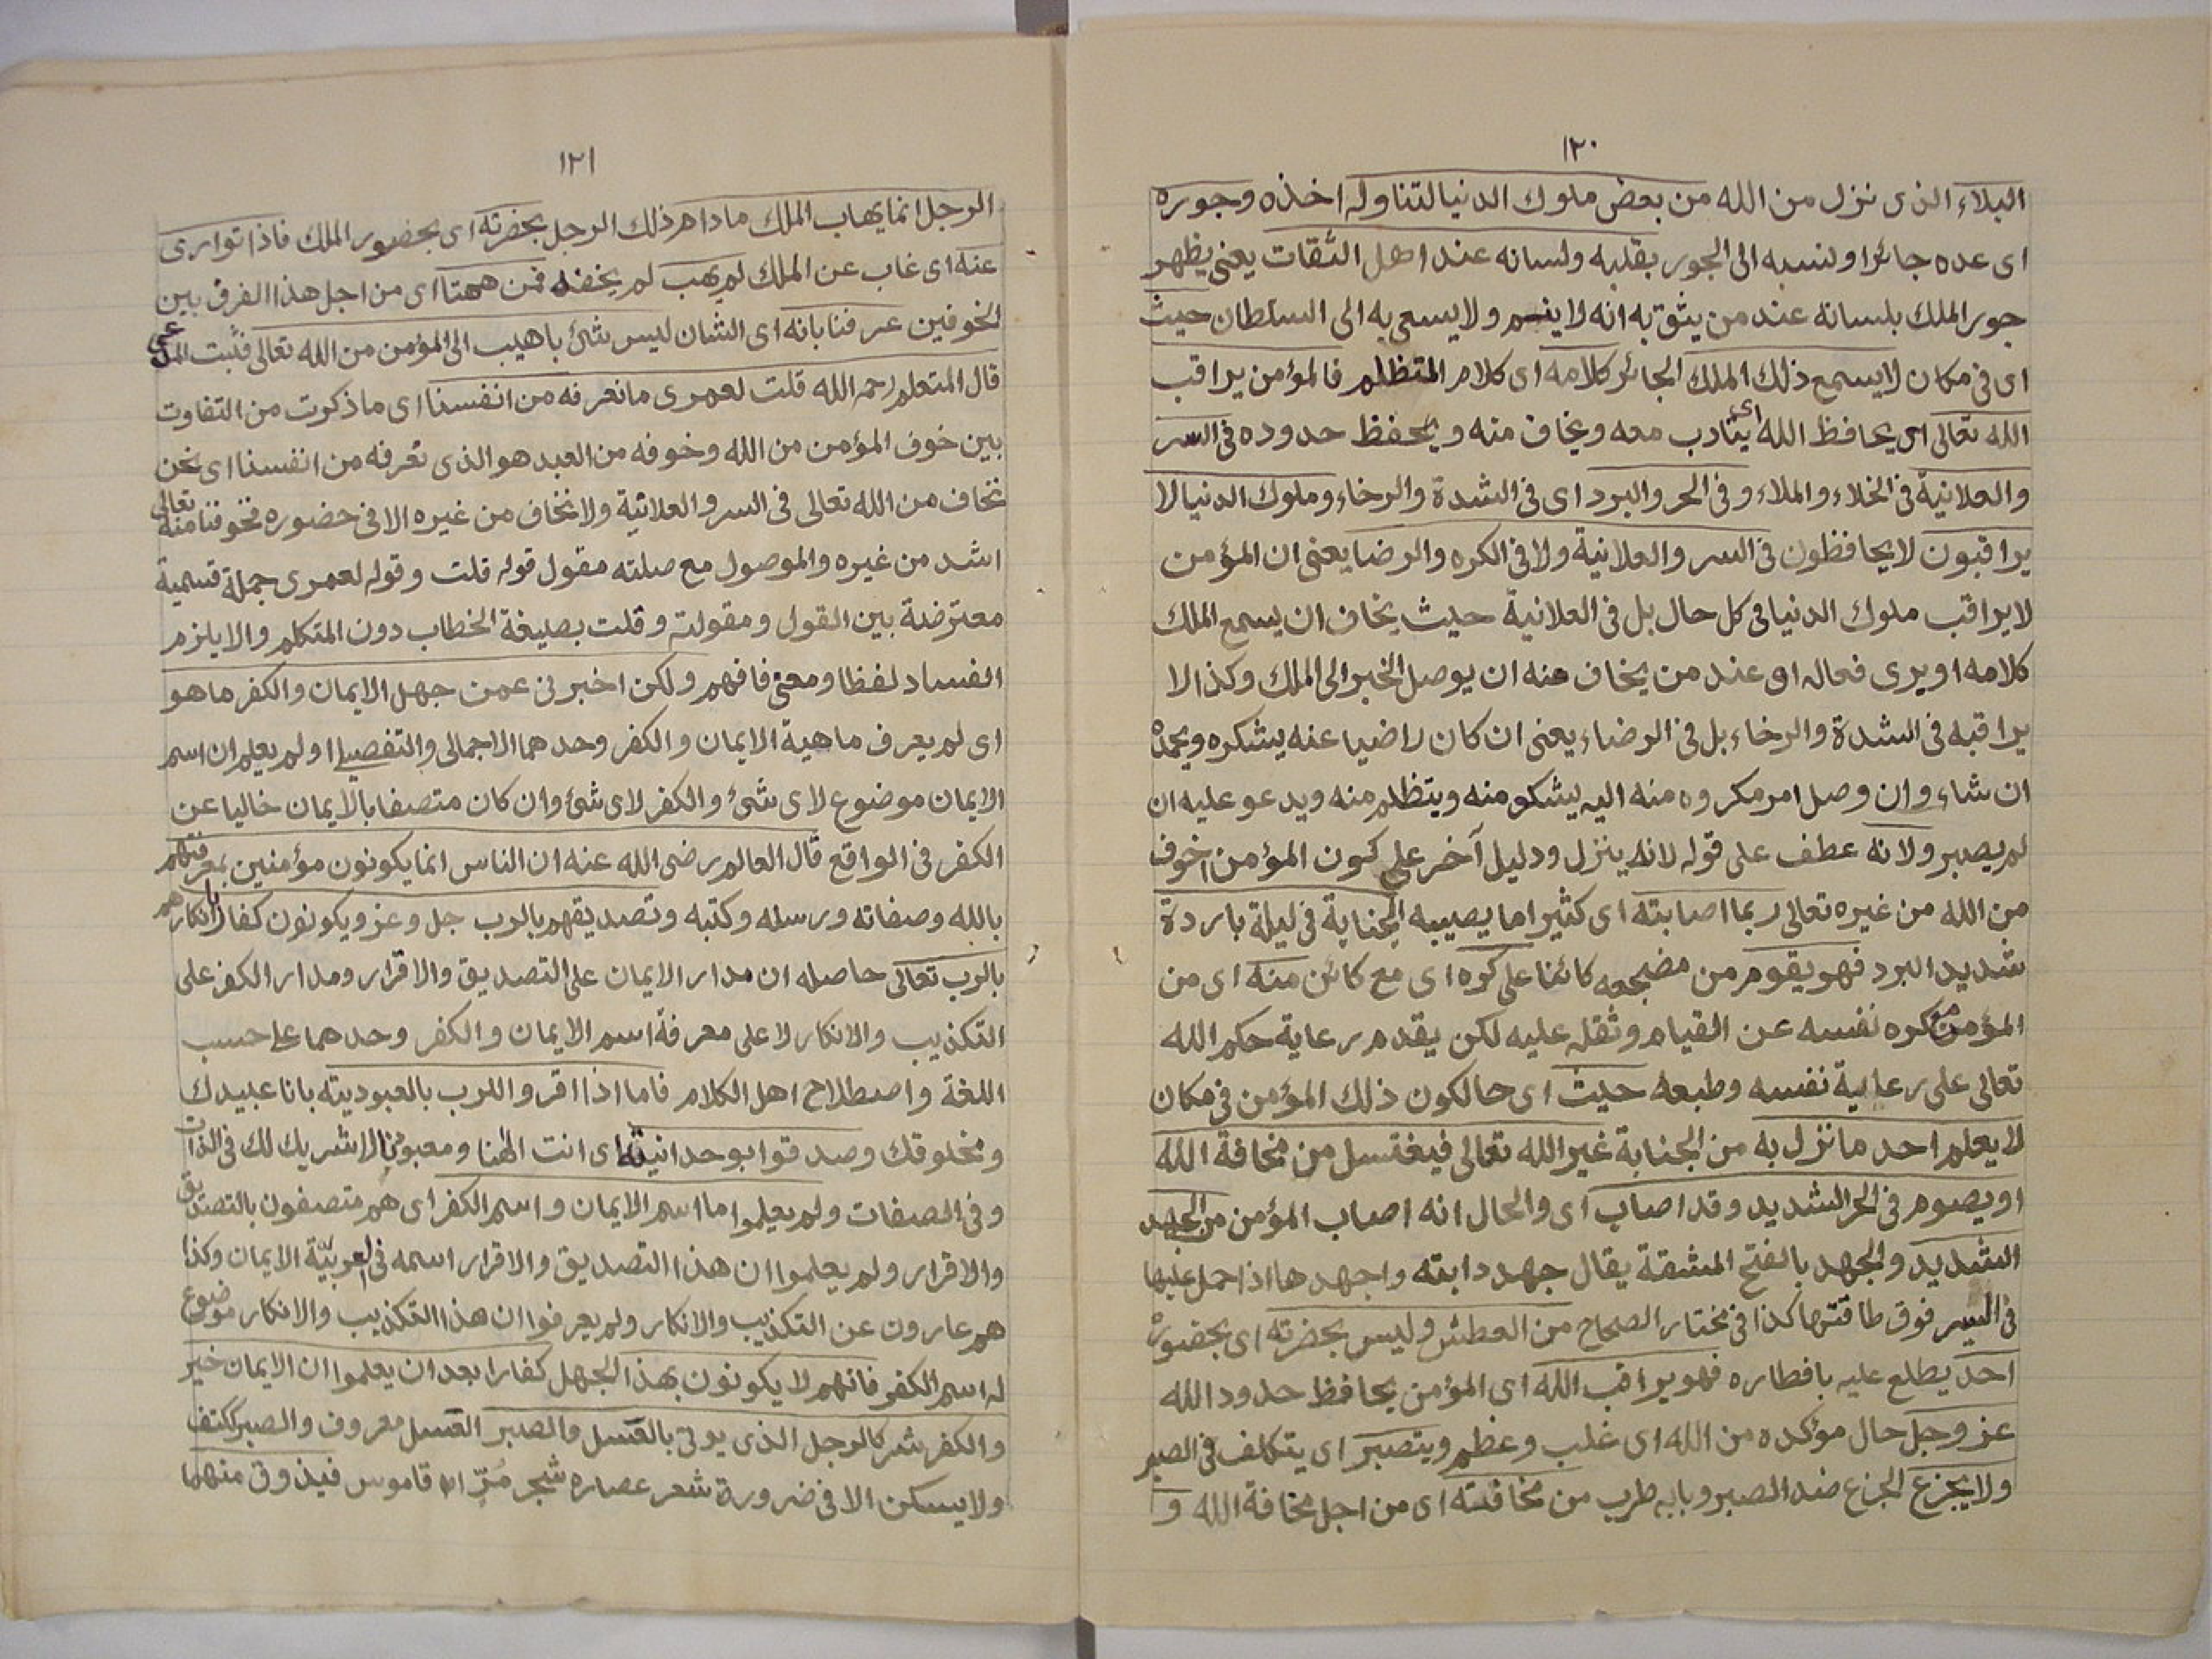 ١٢٠
البلاء الذى نزل من الله من بعض ملوك الدنيا لتناوله اخذه وجوره
اى عده جائرا ونسبه الى الجور بقلبه ولسانه عند اهل الثقات يعنى يظهر
جور الملك بلسانه عند من يثق به انه لا ينم ولا يسعى به الى السلطان حيث
اى فى مكان لا يسمع ذلك الملك الجائر كلامه اى كلام المتظلم فالمؤمن يراقب
الله تعالى اى يحافظ الله اى يتادب معه ويخاف منه ويحفظ حدوده فى السر
والعلانية فى الخلاء والملاء وفى الحر والبرد اى فى الشدة والرخاء وملوك الدنيا لا
يراقبون لا يحافظون فى السر والعلانية ولا فى الكره والرضا يعنى ان المؤمن
لا يراقب ملوك الدنيا فى كل حال بل فى العلانية حيث يخاف ان يسمع الملك
كلامه او يرى فعاله او عند من يخاف منه ان يوصل الخبر الى الملك وكذا لا
يراقبه فى الشدة والرخاء بل فى الرضاء يعنى ان كان راضيا عنه يشكره ويحمده
ان شاء وان وصل امر مكروه منه اليه يشكو منه ويتظلم منه ويدعو عليه ان
لم يصبر ولانه عطف على قوله لانه ينزل ودليل آخر على كون المؤمن اخوف
من الله من غيره تعالى ربما اصابته اى كثيرا ما يصيبه الجنابة فى ليلة باردة
شديد البرد فهو يقوم من مضجعه كائنا على كره اى مع كائن منه اى من
المؤمن كره نفسه عن القيام وثقله عليه لكن يقدم رعاية حكم الله
تعالى على رعاية نفسه وطبعه حيث اى حالكون ذلك المؤمن فى مكان
لا يعلم احد ما نزل به من الجنابة غير الله تعالى فيغتسل من مخافة الله
او يصوم فى الحر الشديد وقد اصاب اى والحال انه اصاب المؤمن من الجهد
الشديد والجهد بالفتح المشقة يقال جهد دابته واجهدها اذا حمل عليها
فى السير فوق طاقتها كذا فى مختار الصحاح من العطش وليس بحضرته اى بحضوره
احد يطلع عليه بافطاره فهو يراقب الله اى المؤمن يحافظ حدود الله
عز وجل حال مؤكده من الله اى غلب وعظم ويتصبر اى يتكلف فى الصبر
ولا يجزع الجزع ضد الصبر وبابه طرب من مخافته اى من اجل مخافة الله و
١٢١
الرجل انما يهاب الملك ما دام ذلك الرجل بحضرته اى بحضور الملك فاذا توارى
عنه اى غاب عن الملك لم يهب لم يخفه فمن ههنا اى من اجل هذا الفرق بين
الخوفين عرفنا بانه اى الشان ليس شئ باهيب الى المؤمن من الله تعالى فثبت المدعى
قال المتعلم رحمه الله قلت لعمرى ما نعرفه من انفسنا اى ما ذكرت من التفاوت
بين خوف المؤمن من الله وخوفه من العبد هو الذى نعرفه من انفسنا اى نحن
نخاف من الله تعالى فى السر والعلانية ولا نخاف من غيره الا فى حضوره فخوفنا منه تعالى
اشد من غيره والموصول مع صلته مقول قوله قلت وقوله لعمرى جملة قسمية
معترضة بين القول ومقولته وقلت بصيغة الخطاب دون المتكلم والا يلزم
الفساد لفظا ومعنى فافهم ولكن اخبرنى عمن جهل الايمان والكفر ما هو
اى لم يعرف ماهية الايمان والكفر وحدهما الاجمالى والتفصيلى او لم يعلم ان اسم
الايمان موضوع لاى شئ والكفر لاى شئ وان كان متصفا بالايمان خاليا عن
الكفر فى الواقع قال العالم رضى الله عنه ان الناس انما يكونون مؤمنين بمعرفتهم
بالله وصفاته ورسله وكتبه وتصديقهم بالرب جل وعز ويكونون كفارا بانكارهم
بالرب تعالى حاصله ان مدار الايمان على التصديق والاقرار ومدار الكفر على
التكذيب والانكار لا على معرفة اسم الايمان والكفر وحدهما على حسب
اللغة واصطلاح اهل الكلام فاما اذا اقروا للرب بالعبودية بانا عبيدك
ومخلوقك وصدقوا بوحدانيته اى انت الهنا ومعبودنا لا شريك لك فى الذات
وفى الصفات ولم يعلموا ما اسم الايمان واسم الكفر اى هم متصفون بالتصديق
والاقرار ولم يعلموا ان هذا التصديق والاقرار اسمه فى العربية الايمان وكذا
هم عارون عن التكذيب والانكار ولم يعرفوا ان هذا التكذيب والانكار موضوع
له اسم الكفر فانهم لا يكونون بهذا الجهل كفارا بعد ان يعلموا ان الايمان خير
والكفر شر كالرجل الذى يوتى بالعسل والصبر العسل معروف والصبر ككتف
ولا يسكن الا فى ضرورة شعر عصاره شجر مُرّ اه قاموس فيذوق منهما